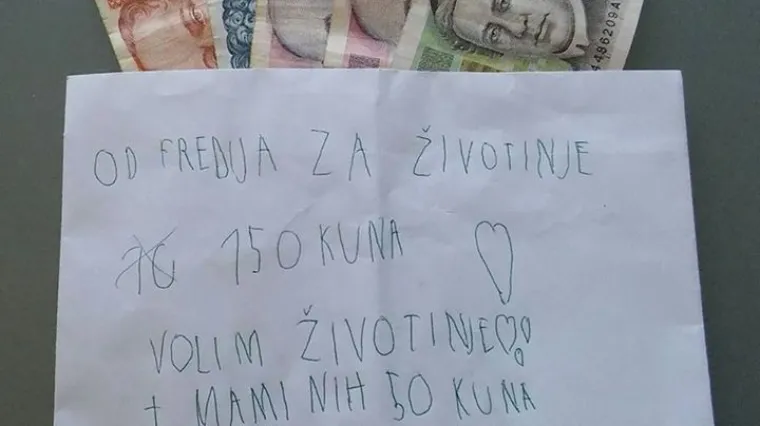 4486209A
OD FREDIJA ZA ŽIVOTINJE
150 KUNA
VOLIM ŽIVOTINJE
+ MAMINIH 50 KUNA